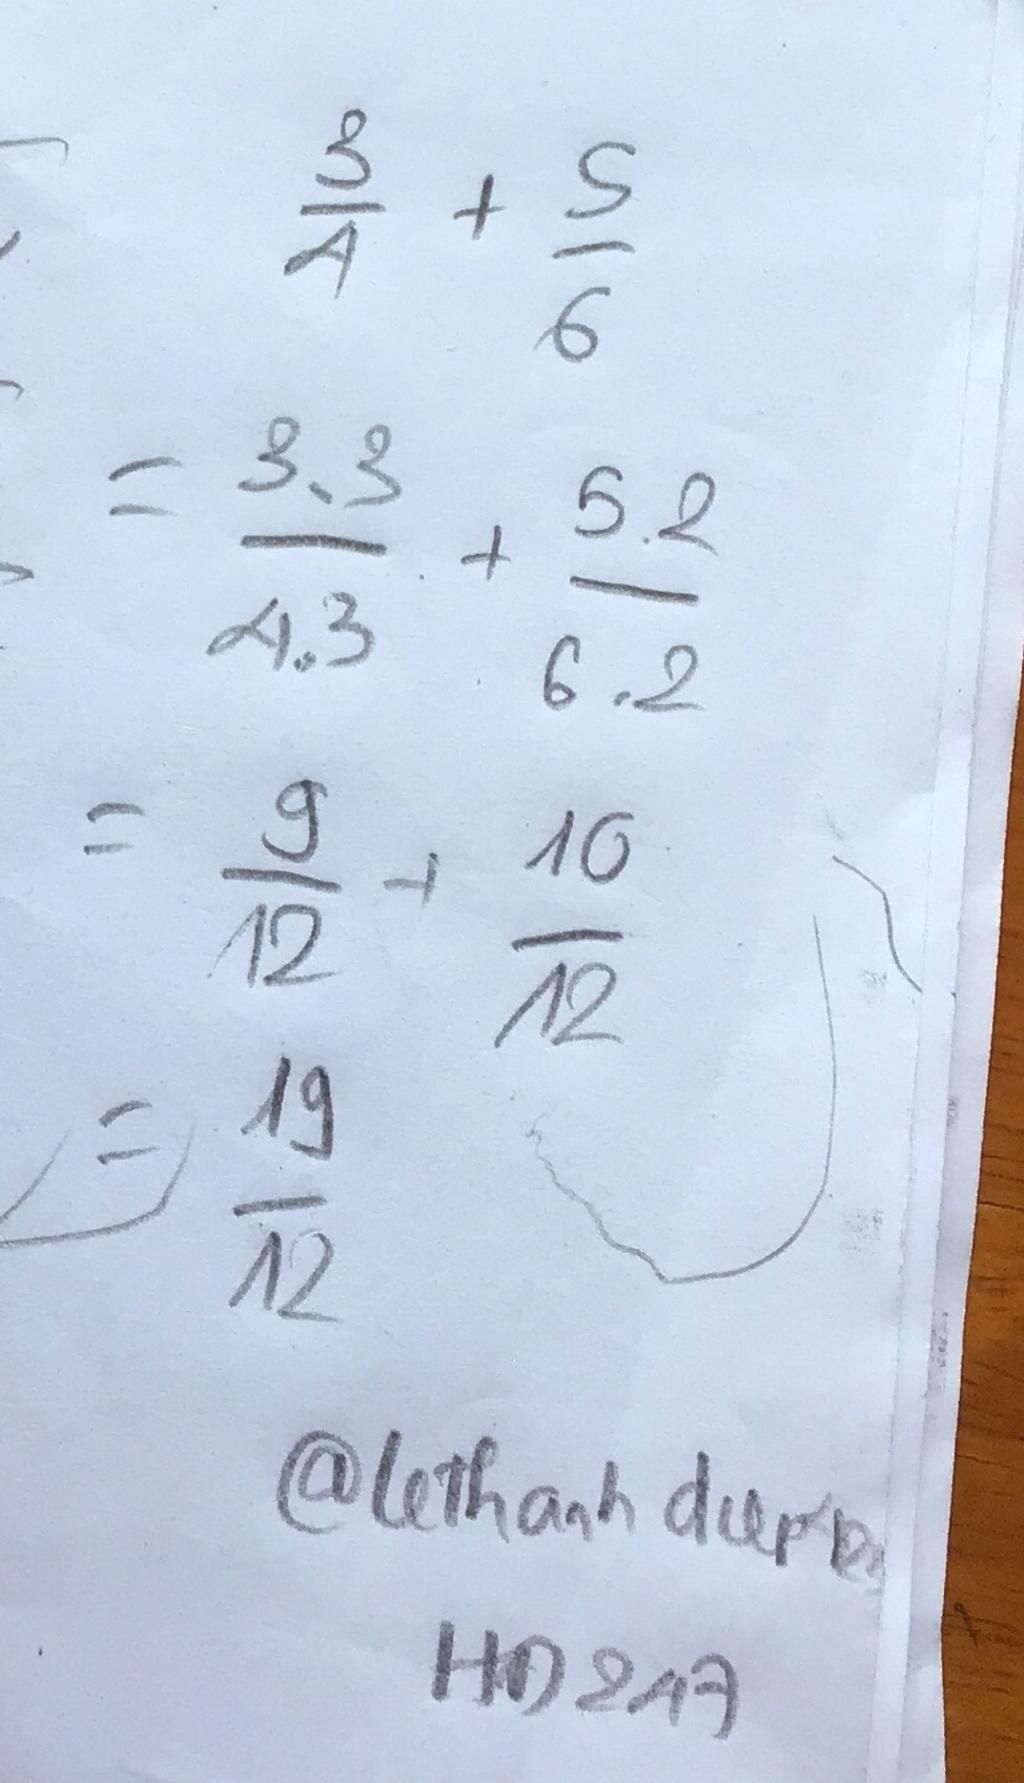 3/4 + 5/6
= 3.3/4.3 + 5.2/6.2
= 9/12 + 10/12
= 19/12
@lethanh diep
HD247